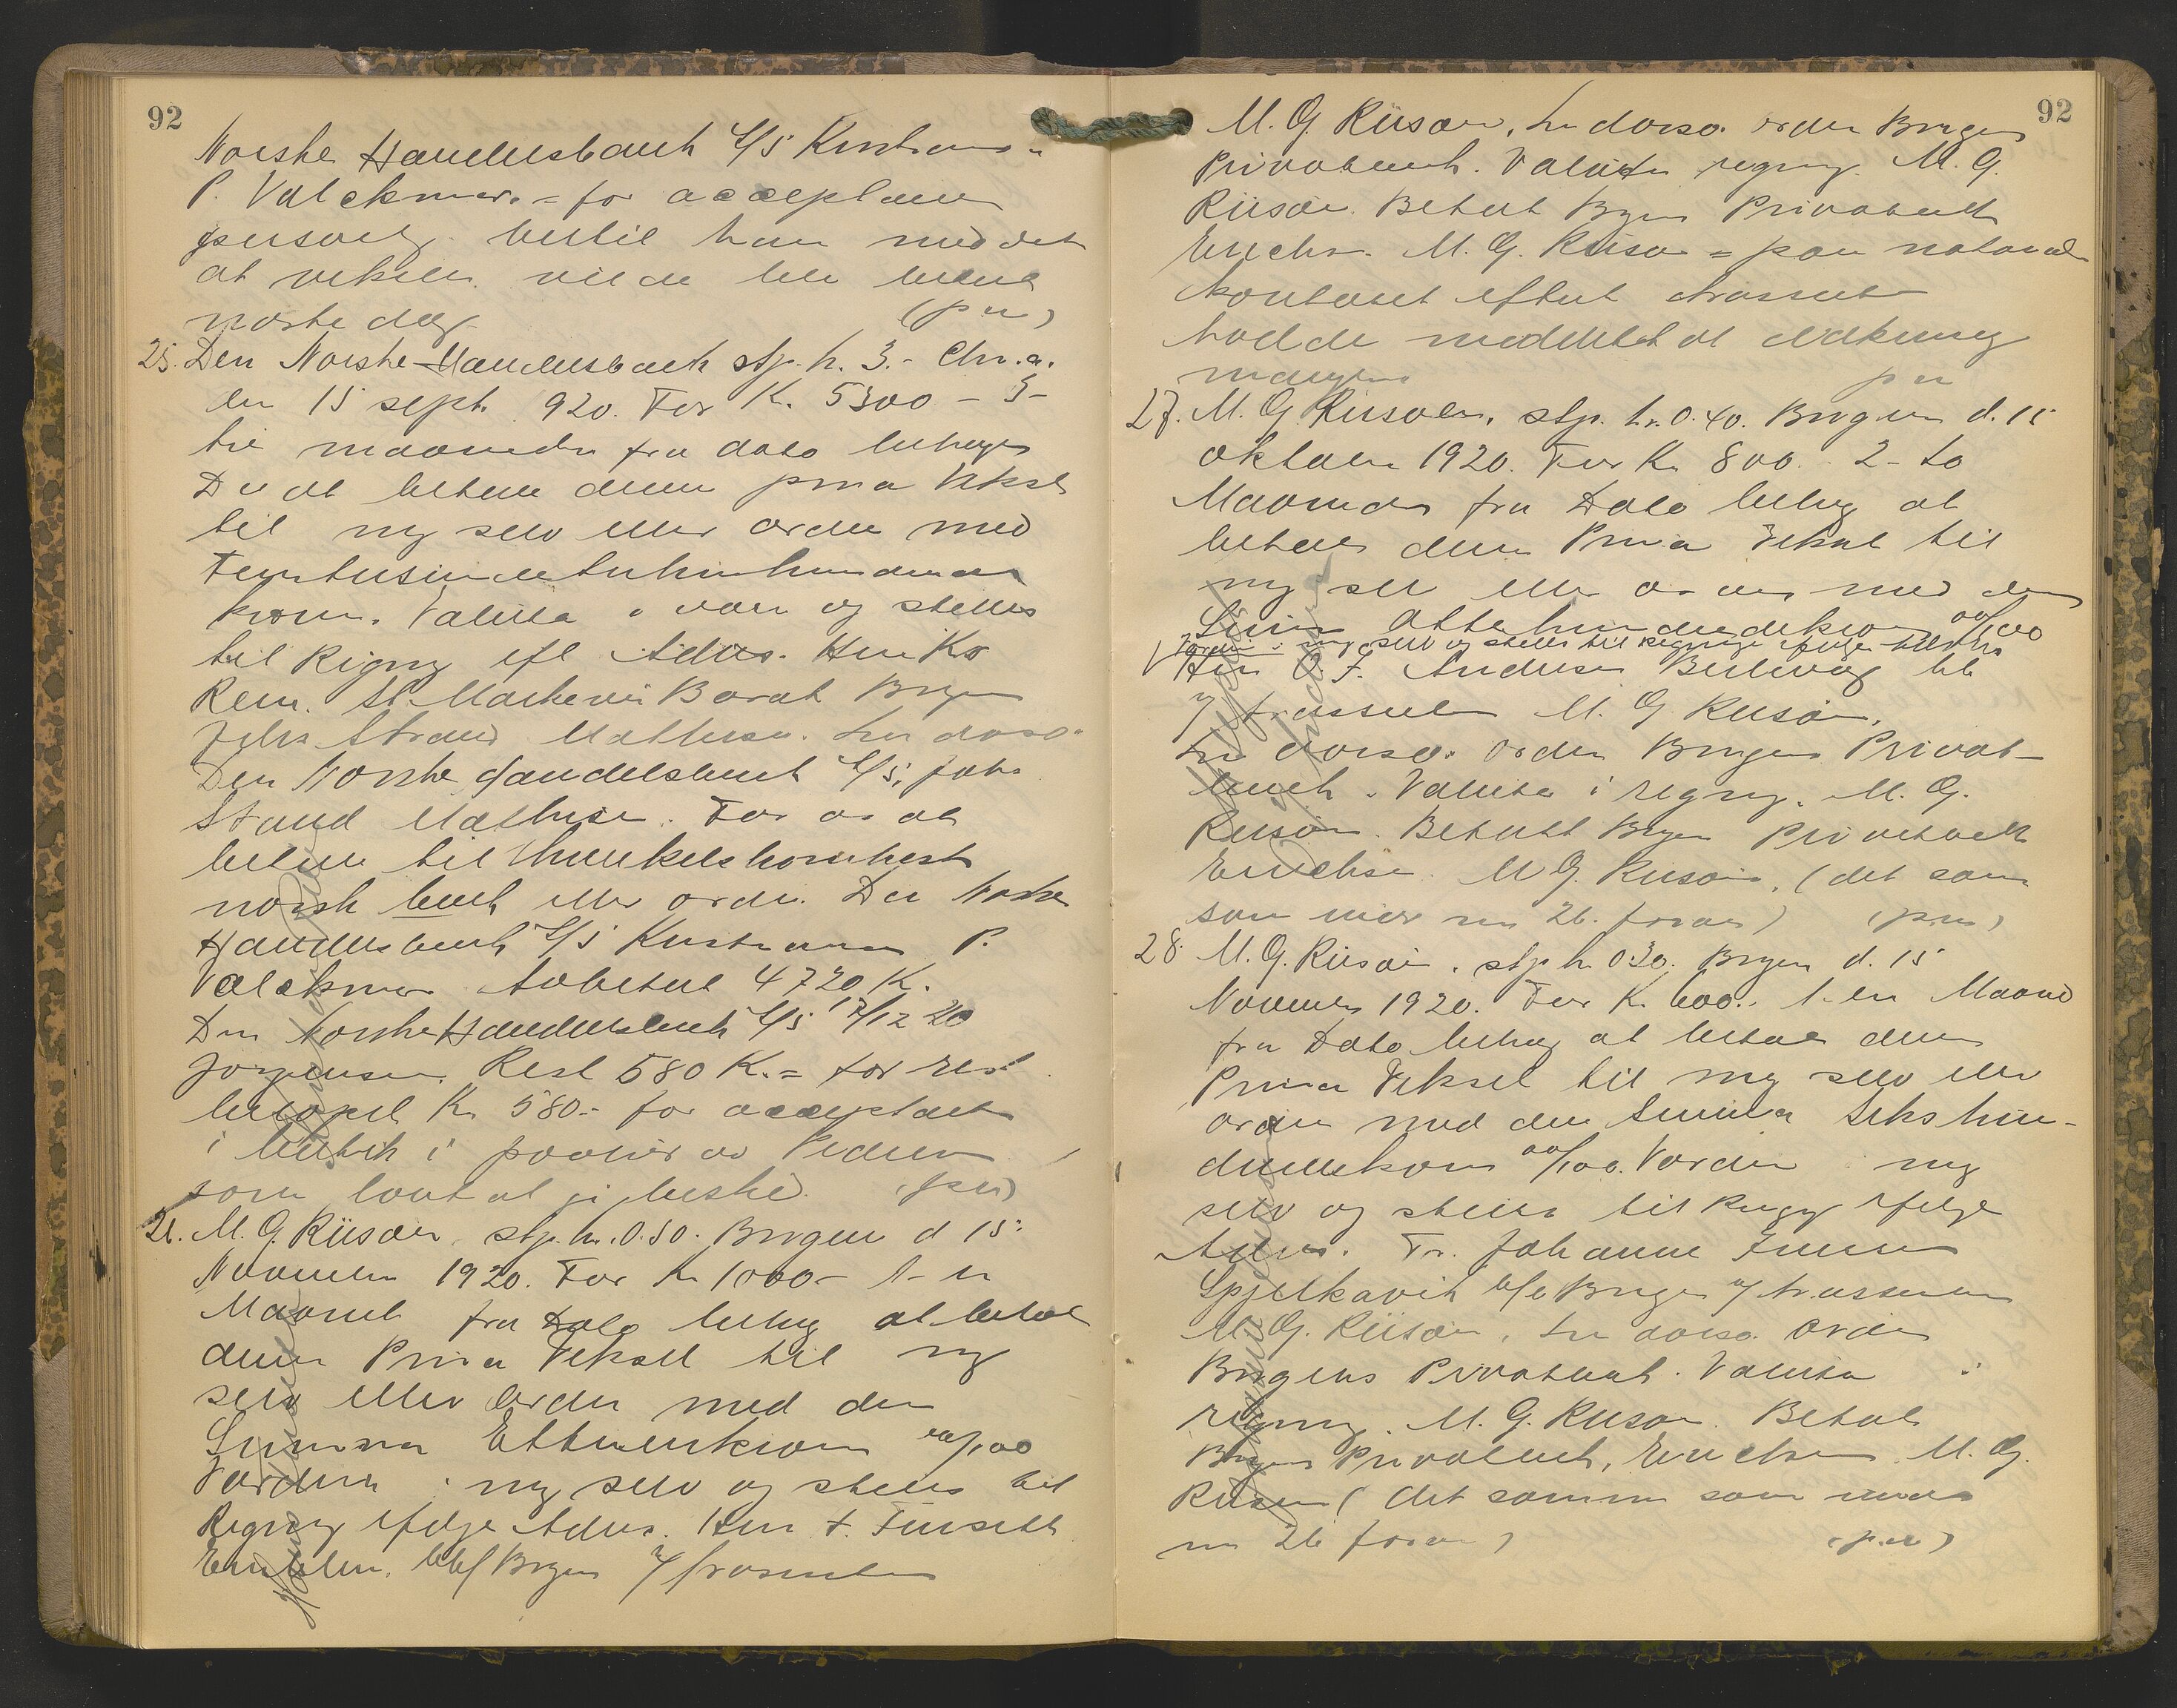 92
Norske Handelsbank A/S Kristiania
P. Valckmar. = for acceptanten
personlig. hertil han meddelte
at vekslen vilde bli betalt
næste dag. (p.m)
25. Den Norske Handelsbank stp. kr. 3.- Chr.a.
den 15 sept. 920. For K. 5300 - 3-
tre maaneder fra dato behages
De at betale denne prima Veksel
til mig selv eller ordre med
Femtusindetrehundrede
kroner. Valuta i varer og stilles
til Regning efl Advis. Herr Kr
Rem. St. Markevei Borat Bergen
John Strand Mathisen. In dorso:
Den Norske Handelsbank A/S, John
Strand Mathisen. For os at
betale til
norsk bank eller ordre. Den Norske
Handelsbank A/S Kristiania P.
Valckmar Avbetalt 4720 K.
Den Norske Handelsbank A/S 17/12 20
Jørgensen. Rest 580 K. = for rest
beløpet Kr. 580.- for acceptanten
i butik i av
som lovet at gi beskjed. (p.m)
26. M. G. Riisøen, stp. kr. 0.50. Bergen d 15:
November 1920. For Kr 1000- 1- en
Maaned fra Dato behag at betale
denne Prima Veksel til mig
selv eller Ordre med den
Summa Ettusenkroner 00/100
Værdien i mig selv og stilles til
Regning ifølge Advis. Herr F. Finseth
bet/ Bergen s/ trassenten
92
M. G. Riisøen, In dorso. ordre Bergens
Privatbank. Valuta i regning. M. G.
Riisøen. Betalt Bergens Privatbank
Erichsen. M. G. Riisøen = paa notarial
kontoret eftersat trassenten
hadde meddelt at dækning
mangler p m
27. M. G. Riisøen, stp. kr. 0.40. Bergen d. 15
oktober 1920. For Kr 800. 2- to
Maaneder fra Dato behag at
betale denne Prima Veksel til
mig selv eller ordre med den
Summa Ottehundredekroner 00/100
Værdien i mig selv og stilles til Regning ifølge Advis
Herr O. F. Andersen Berlevåg bet
s/ trassenten M. G. Riisøen.
In dorso. Ordre Bergens Privat-
bank. Valuta i regning. M. G.
Riisøen. Betalt Bergens Privatbank
Erichsen. M G. Riisøen. (det samme
som under nr 26. foran) (p.m)
28. M. G. Riisøen. stp kr. 0.30. Bergen d. 15
November 1920. For K. 600.- 1- en Maaned
fra Dato behag at betale denne
Prima Veksel til mig selv eller
ordre med den Summa Sekshun-
dredekroner 00/100. Værdien i mig
selv og stilles til Regning ifølge
Advis. Fr. Johanne Jensen
Spjelkavik b/e Bergen s/ trassenten
M. G. Riisøen, In dorso. Ordre
Bergens Privatbank. Valuta i
regning. M. G. Riisøen. Betalt
Bergens Privatbank, Erichsen. M. G.
Riisøen (det samme som under
nr 26 foran) (p.m)